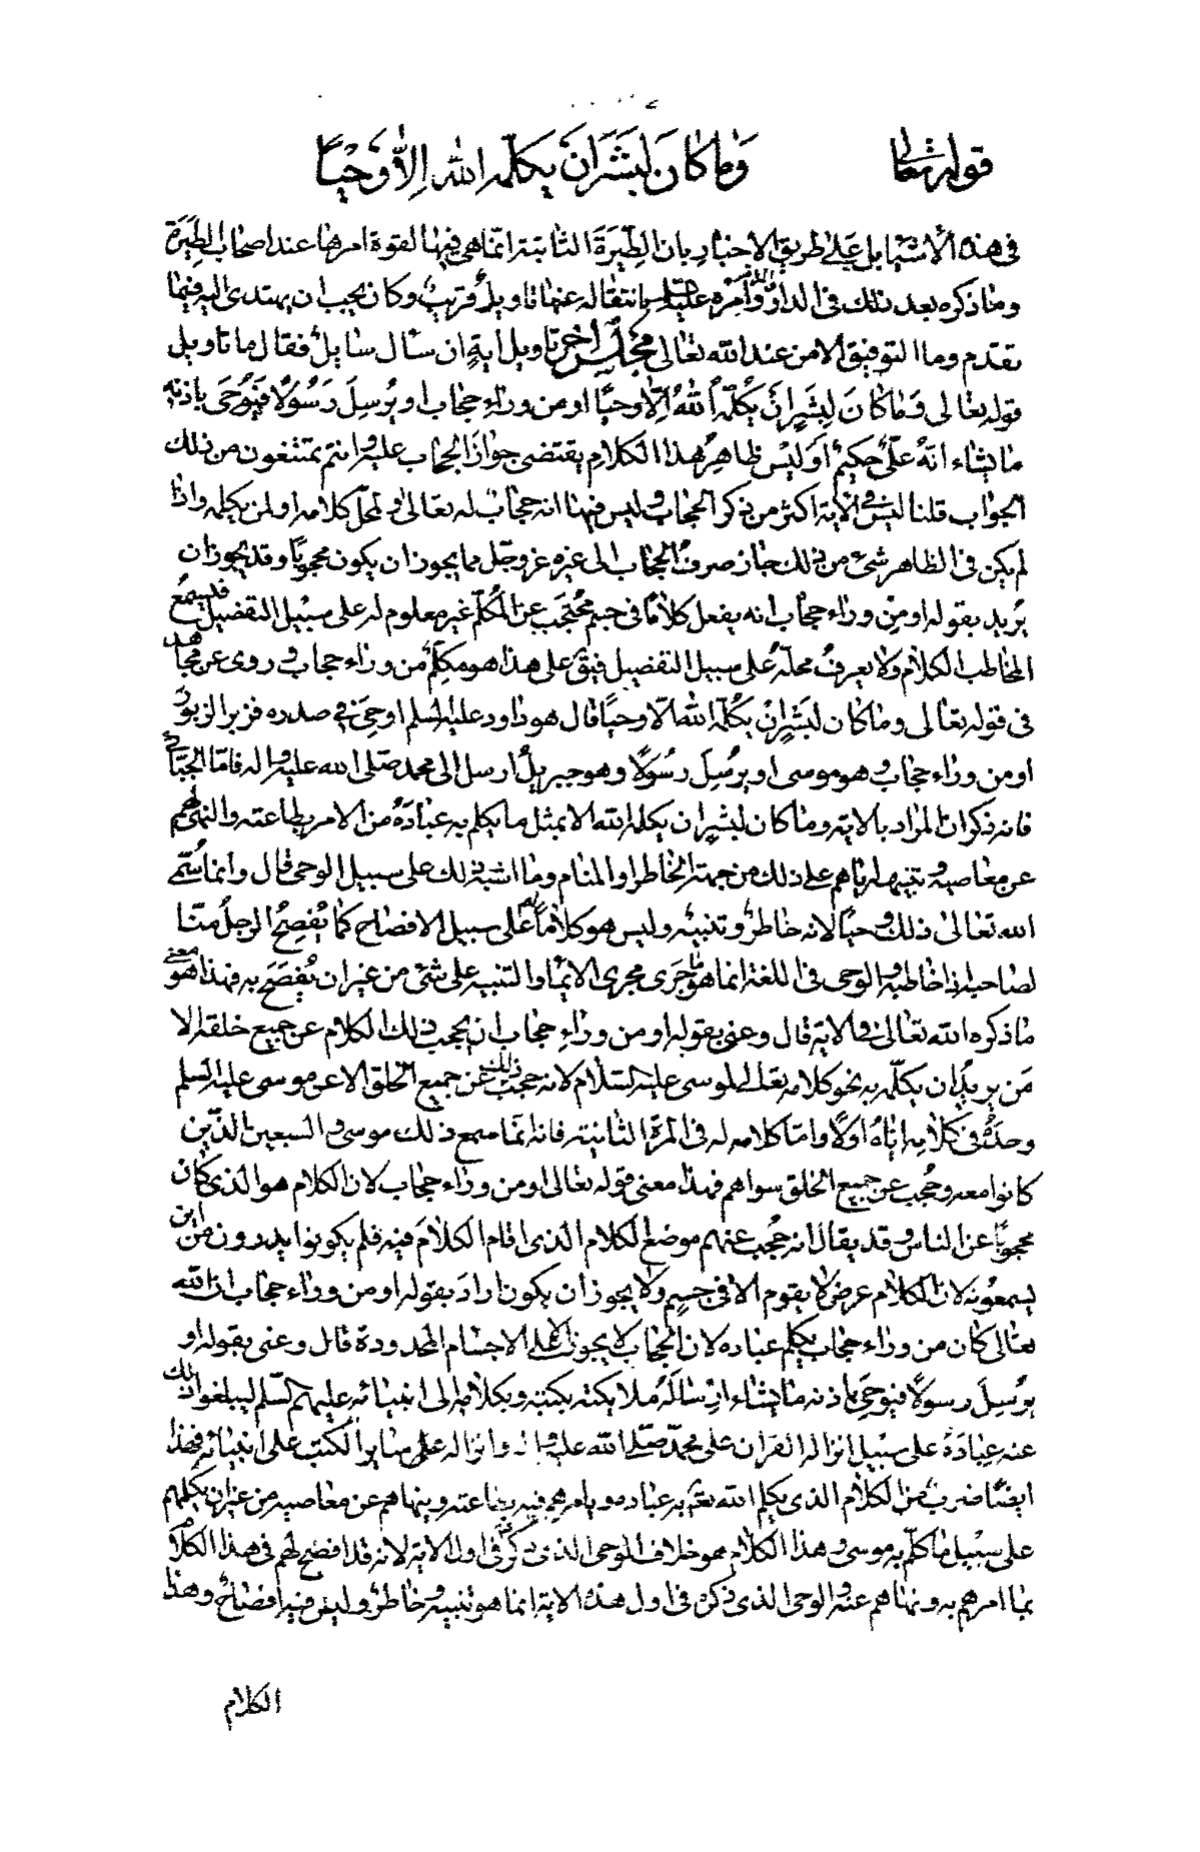 قوله تعالى وَمَا كَانَ لِبَشَرٍ اَنْ يكلّمه الله اِلاّ وَحْيًا
فى هذه الاشيا بل على طريق الاخبار بان الطِّيَرَةَ الثابتة انما هى فيها لقوة امرها عند اصحاب الطِّيَرَة
وما ذكره بعد ذلك فى الدار وامره عليه السلم بانتقاله عنها تاويلٌ قريبٌ وكان يجب ان يهتدى اليه فيما
تقدم وما التوفيق الا من عند الله تعالى مجلس اخر تاويل ايةٍ ان سأل سايلٌ فقال ما تاويل
قوله تعالى وَمَا كَانَ لِبَشَرٍ اَنْ يُكَلِّمَهُ اللهُ اِلّا وحيًا او من وراءِ حجاب او يُرسِلَ رَسُولًا فَيُوحَى باذنه
ما يشاء انهُ علىٌّ حكيمٌ اَوَليْس ظاهِرُ هذا الكلام يقتضى جوازَ الحجاب عليه وانتم تمنعون من ذلك
الجواب قلنا ليس فى الاية اكثر من ذكر الحجاب وليس فيها انه حجابٌ له تعالى او لمحلّ كلامه او لمن يكلمه واذا
لم يكن فى الظاهر شئ من ذلك جاز صرفُ الحجاب الى غيره عزّ وجلّ مما يجوز ان يكون محجوبًا وقد يجوز ان
يُريد بقوله او مِن وراءِ حجاب انه يفعل كلامًا فى جسمٍ مُحتجَبٍ عن المُكَلَّم غير معلوم له على سبيل التفصيل فيسمع
المخاطب الكلام ولا يعرفُ محلّهُ على سبيل التفصيل فيق على هذا هو مكلَّمٌ من وراء حجاب وروى عن مجاهد
فى قوله تعالى وما كان لبَشَرٍ اَنْ يُكَلّمَه اللهُ الّا وحيًا قال هو داود عليه السلم اوحِىَ فى صدره فزبر الزبورَ
او من وراء حجاب وهو موسى او يرُسِلَ رسُولًا وهو جبريلُ ارسل الى محمد صلى الله عليه واله فامّا الجبّائى
فانه ذكر ان المراد بالاية وما كان لبشرٍ ان يكلمه الله الا بمثل ما يكلم به عبادَهُ من الامر بطاعته والنهى لهم
عن معاصيه وتنبيهه اياهم على ذلك من جهة الخاطر او المنام وما اشبه ذلك على سبيل الوحى قال وانما سُمّى
الله تعالى ذلك وحيًا لانه خاطرٌ وتنبيهٌ وليس هو كلامًا على سبيل الافصاح كما يُفصِحُ الرجلُ منّا
لصاحبه اذا خاطبه والوحى فى اللغة انما هو ما جَرَى مجرى الايماء والتنبيه على شئ من غير ان يُفصَحَ به فهذا هو معنى
ما ذكره الله تعالى فى الاية قال وعنى بقوله او من وراءِ حجاب ان يحجب ذلك الكلام عن جميع خلقه الا
مَن يريد ان يكلّمه به نحو كلامه تعالى لموسى عليه السلام لانه حجب ذلك عن جميع الخلق الا عن موسى عليه السلم
وحدَهُ فى كلامِه ايّاهُ اوّلًا وامّا كلامه له فى المرة الثانية فانه انّما سمع ذلك موسى والسبعين الّذين
كانوا معه وحُجب عن جميع الخلق سواهم فهذا معنى قوله تعالى او من وراء حجاب لان الكلام هو الذى كان
محجوبًا عن الناس وقد يقال انه حُجب عنهم موضع الكلام الذى اقام الكلامَ فيه فلم يكونوا يدرون من اين
يسمعونه لان الكلام عرض لا يقوم الا فى جسمٍ ولا يجوز ان يكون ارادَ بقوله او من وراء حجاب ان الله
تعالى كان من وراء حجاب يكلم عباده لان الحجاب لا يجوز الا على الاجسام المحدودة قال وعنى بقوله او
يُرسِلَ رسولًا فيوحِىَ باذنه ما يشاء اِرْسالَهُ ملائكته بكتبه وبكلامه الى انبيائه عليهم السّلم ليبلغوا ذلك
عنه عِبادَهُ على سبيل انزاله القرآن على محمّد صلى الله عليه واله وانزاله على ساير الكتب على انبيائه فهذا
ايضًا ضربٌ من الكلام الذى يكلم الله تعالى به عباده ويامرهم فيه بطاعته وينهاهم عن معاصيه من غير ان يكلمهم
على سبيل ما كلّم به موسى وهذا الكلام هو خلاف الوحى الذى ذكره فى اول الاية لانه قد افصح لهم فى هذا الكلام
بما امرهم به ونهاهم عنه والوحى الذى ذكره فى اول هذه الاية انما هو تنبيه وخاطرٌ وليس فيه افصاحٌ وهذا
الكلام